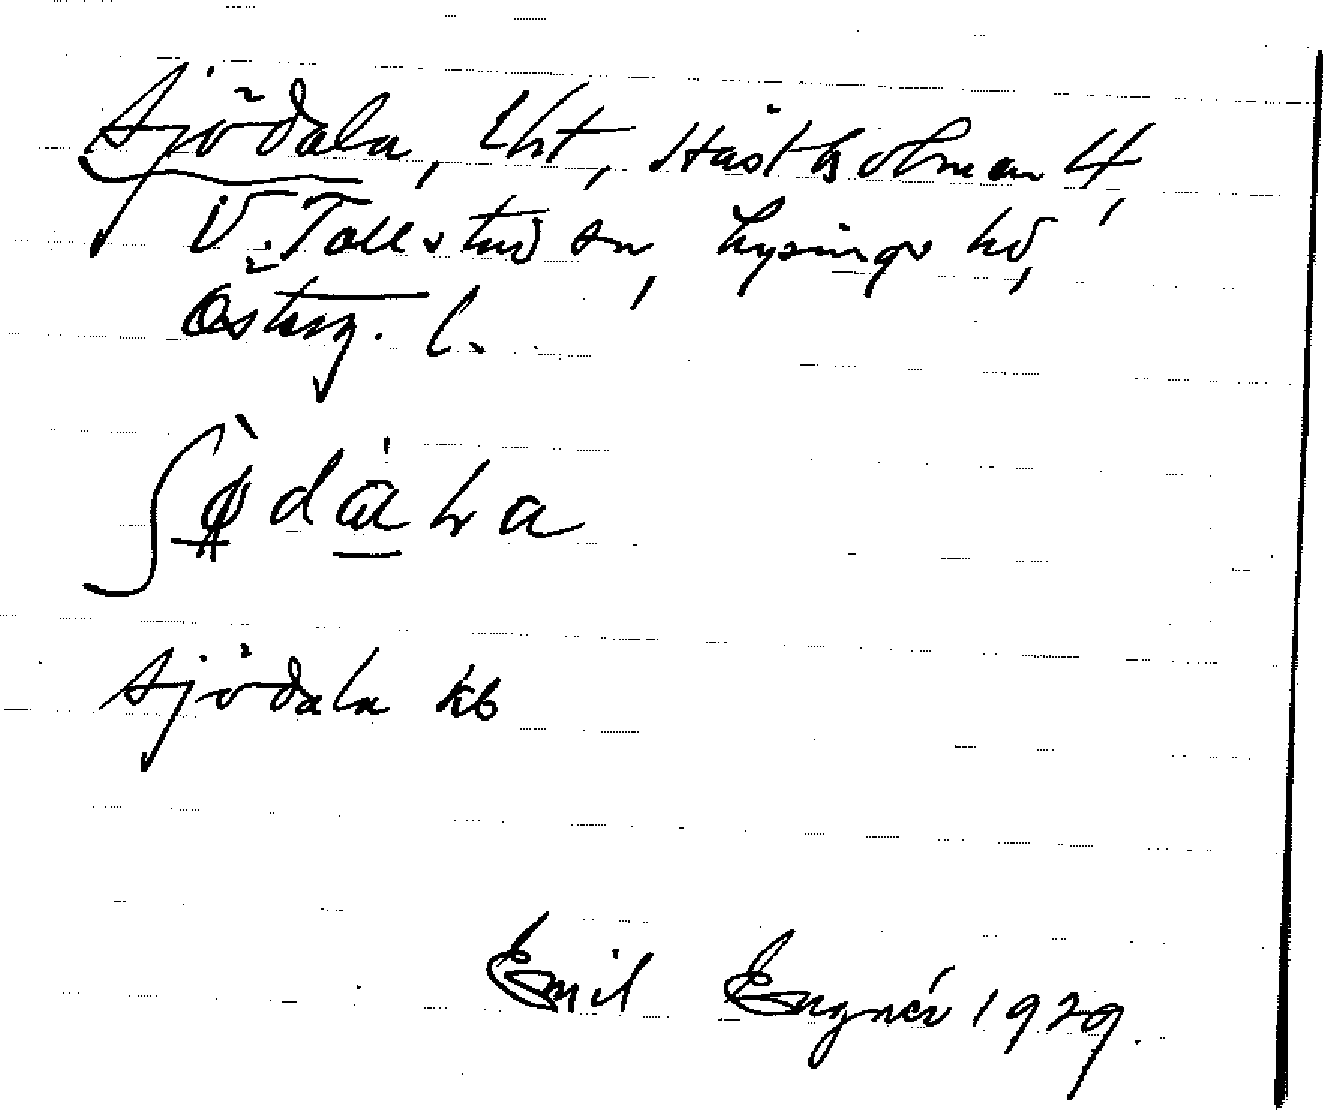 Sjödala, lht, Hästholmen 4,
V. Tollstad sn, Lysings hd,
Österg. l.
sjödala kb
Emil Engnér 1929.